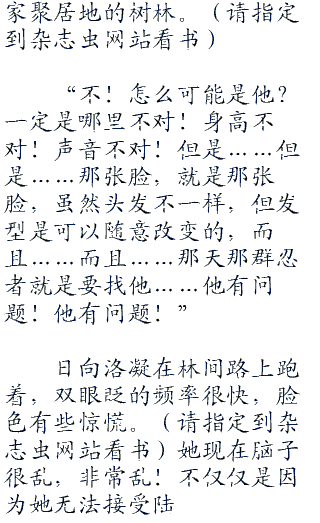 家聚居地的树林。（请指定
到杂志虫网站看书）
“不！怎么可能是他？
一定是哪里不对！身高不
对！声音不对！但是……但
是……那张脸，就是那张
脸，虽然头发不一样，但发
型是可以随意改变的，而
且……而且……那天那群忍
者就是要找他……他有问
题！他有问题！”
日向洛凝在林间路上跑
着，双眼眨的频率很快，脸
色有些惊慌。（请指定到杂
志虫网站看书）她现在脑子
很乱，非常乱！不仅仅是因
为她无法接受陆